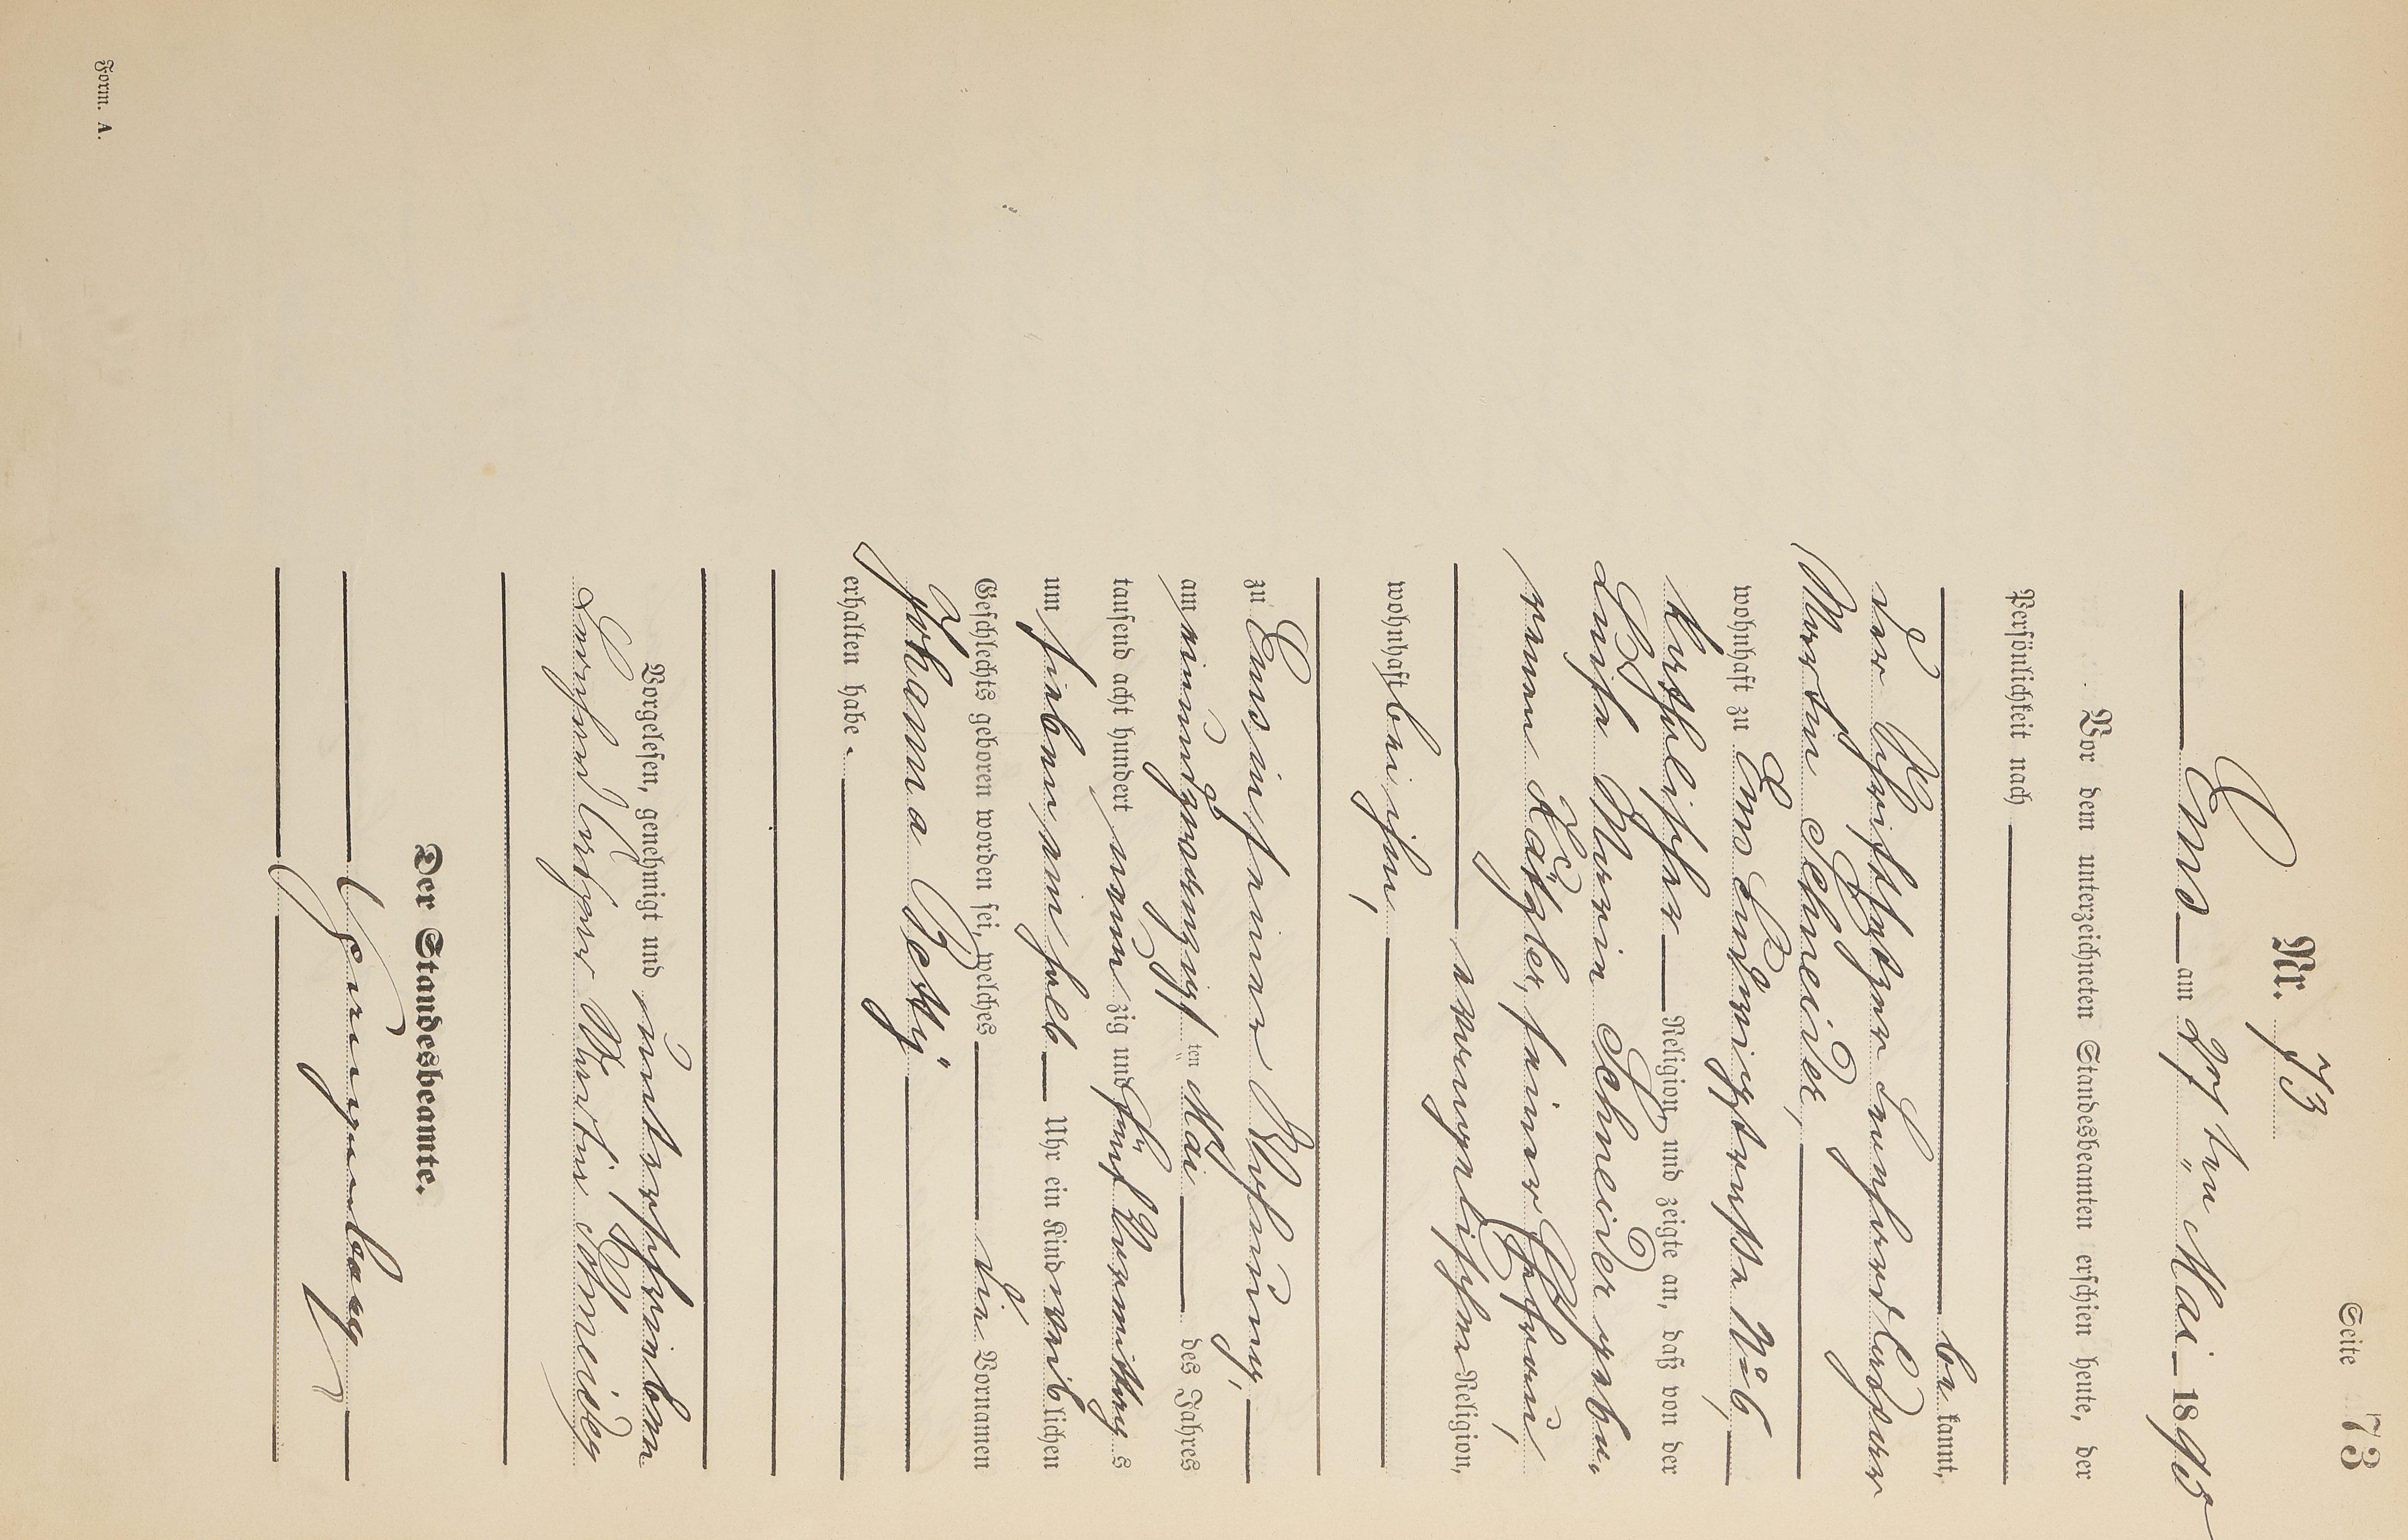 Seite 73
Nr. 73
Ems am 29ſten Mai 1895
Vor dem unterzeichneten Standesbeamten erſchien heute, der
Perſönlichkeit nach
bekannt,
der Schriftſetzer
Martin Schneider,
wohnhaft zu Ems Ludwigſtraße No 6,
katholiſcher Religion, und zeigte an, daß von der
Maria Schneider gebo-
renen Kätzler, ſeiner Ehefrau,
evangeliſchen Religion,
wohnhaft bei ihm,
zu Ems in ſeiner Wohnung,
am einundzwanzigſten Mai des Jahres
tauſend acht hundert neunzig und fünf Vormittags
um ſieben ein halb Uhr ein Kind weiblichen
Geſchlechts geboren worden ſei, welches die Vornamen
Johanna Betty
erhalten habe.
Vorgeleſen, genehmigt und unterſchrieben
Martin Schneider
Der Standesbeamte.
Form. A.